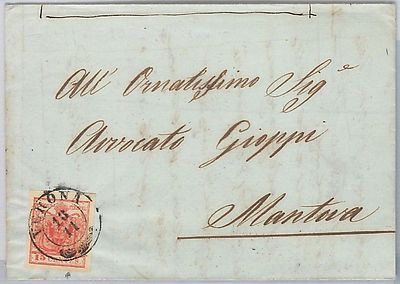 All' Ornatissimo Sig.e
Avvocato Gioppi
Mantova
VERONA
13
11
15